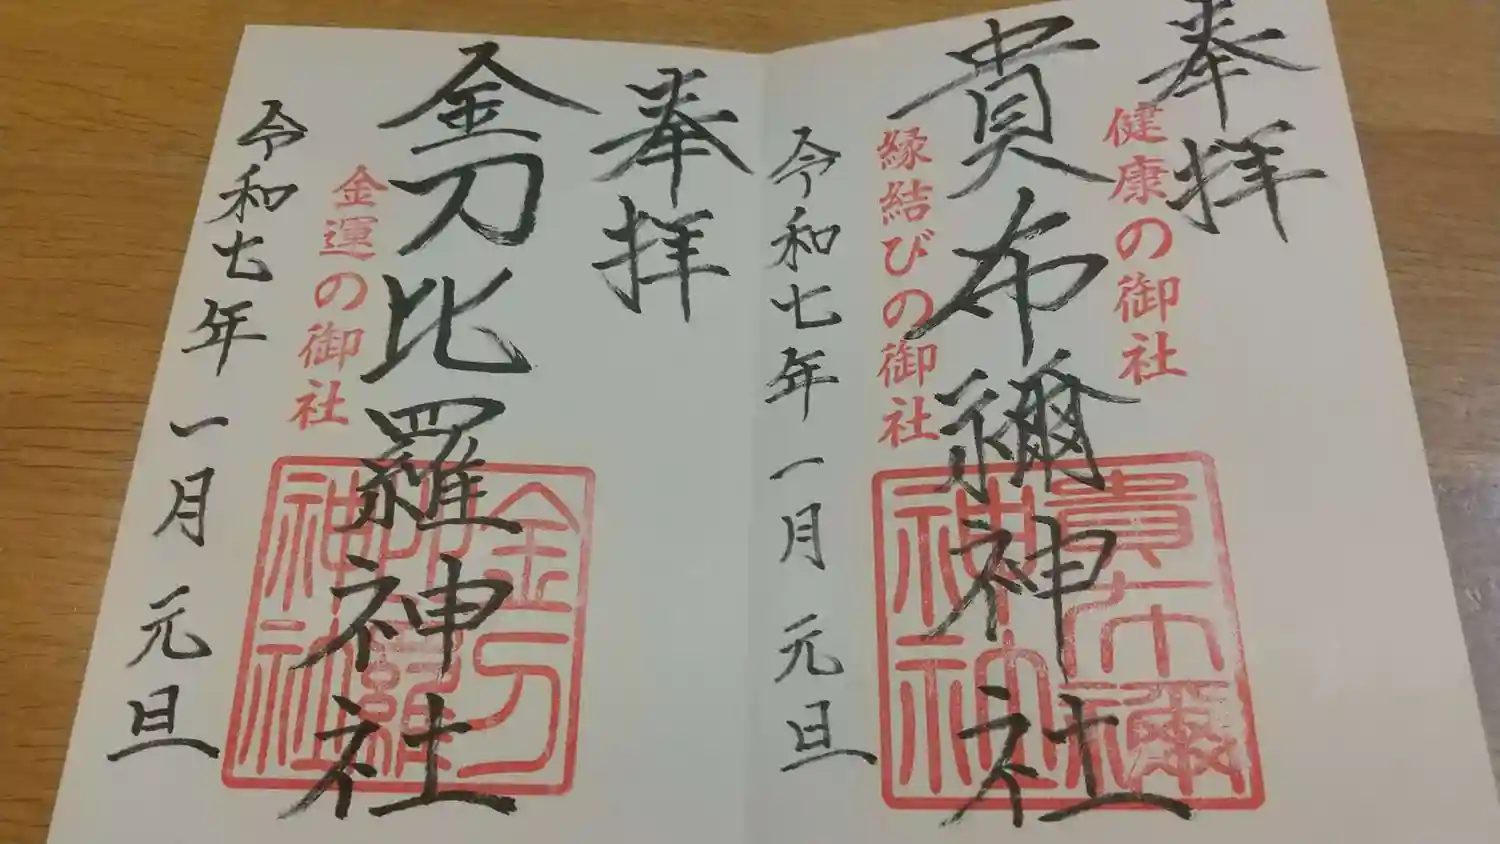 奉拝
健康の御社
貴布禰神社
縁結びの御社
令和七年一月元旦
貴布禰神社
奉拝
金刀比羅神社
金運の御社
令和七年一月元旦
金刀比羅神社